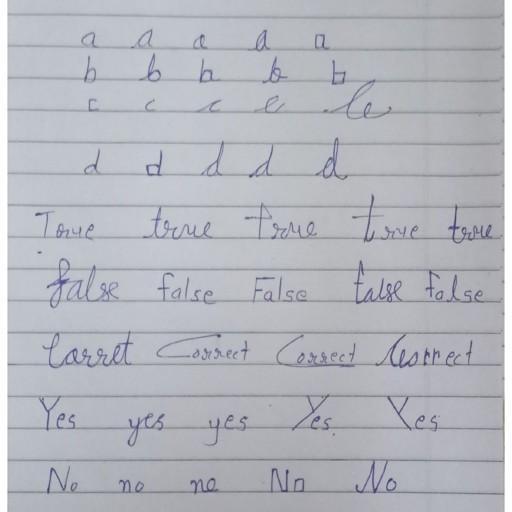 a a a a a
b b b b b
c c c c le
d d d d d
True true True true true
false false False false False
Corret Correct Correct Correct
Yes yes yes Yes. Yes
No no no No No